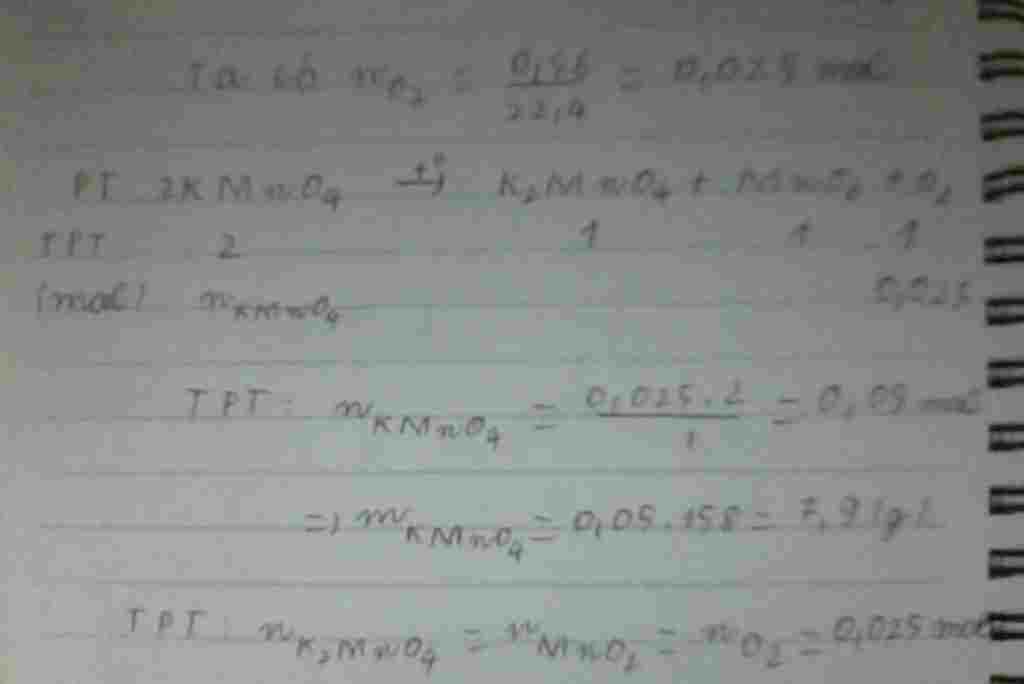 Ta có n O₂ = 0,56/22,4 = 0,025 mol
PT 2KMnO₄ t°→ K₂MnO₄ + MnO₂ + O₂
TPT 2 1 1 1
(mol) n KMnO₄ 0,025
TPT: n KMnO₄ = 0,025.2/1 = 0,05 mol
=> m KMnO₄ = 0,05.158 = 7,9 (g)
TPT: n K₂MnO₄ = n MnO₂ = n O₂ = 0,025 mol